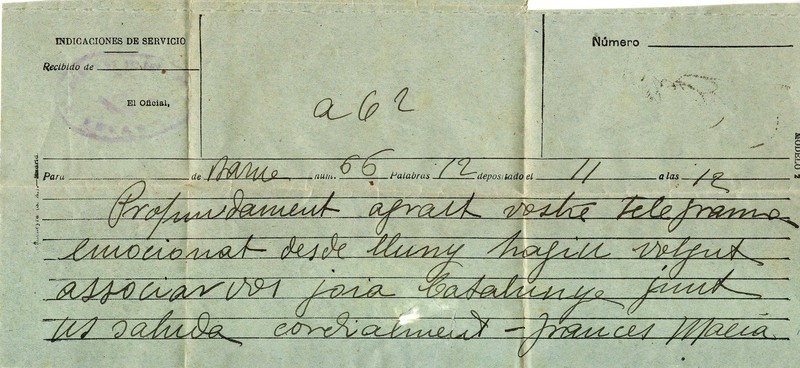 INDICACIONES DE SERVICIO
Recibido de
El Oficial,
Número
a 62
MODELO 1
Para de Barne núm. 66 Palabras 12 depositado el 11 a las 12
Profundament agrait vostre telegrama
emocionat desde lluny hagiu volgut
associarvos joia Catalunya junt
us saluda cordialment - Frances Macia